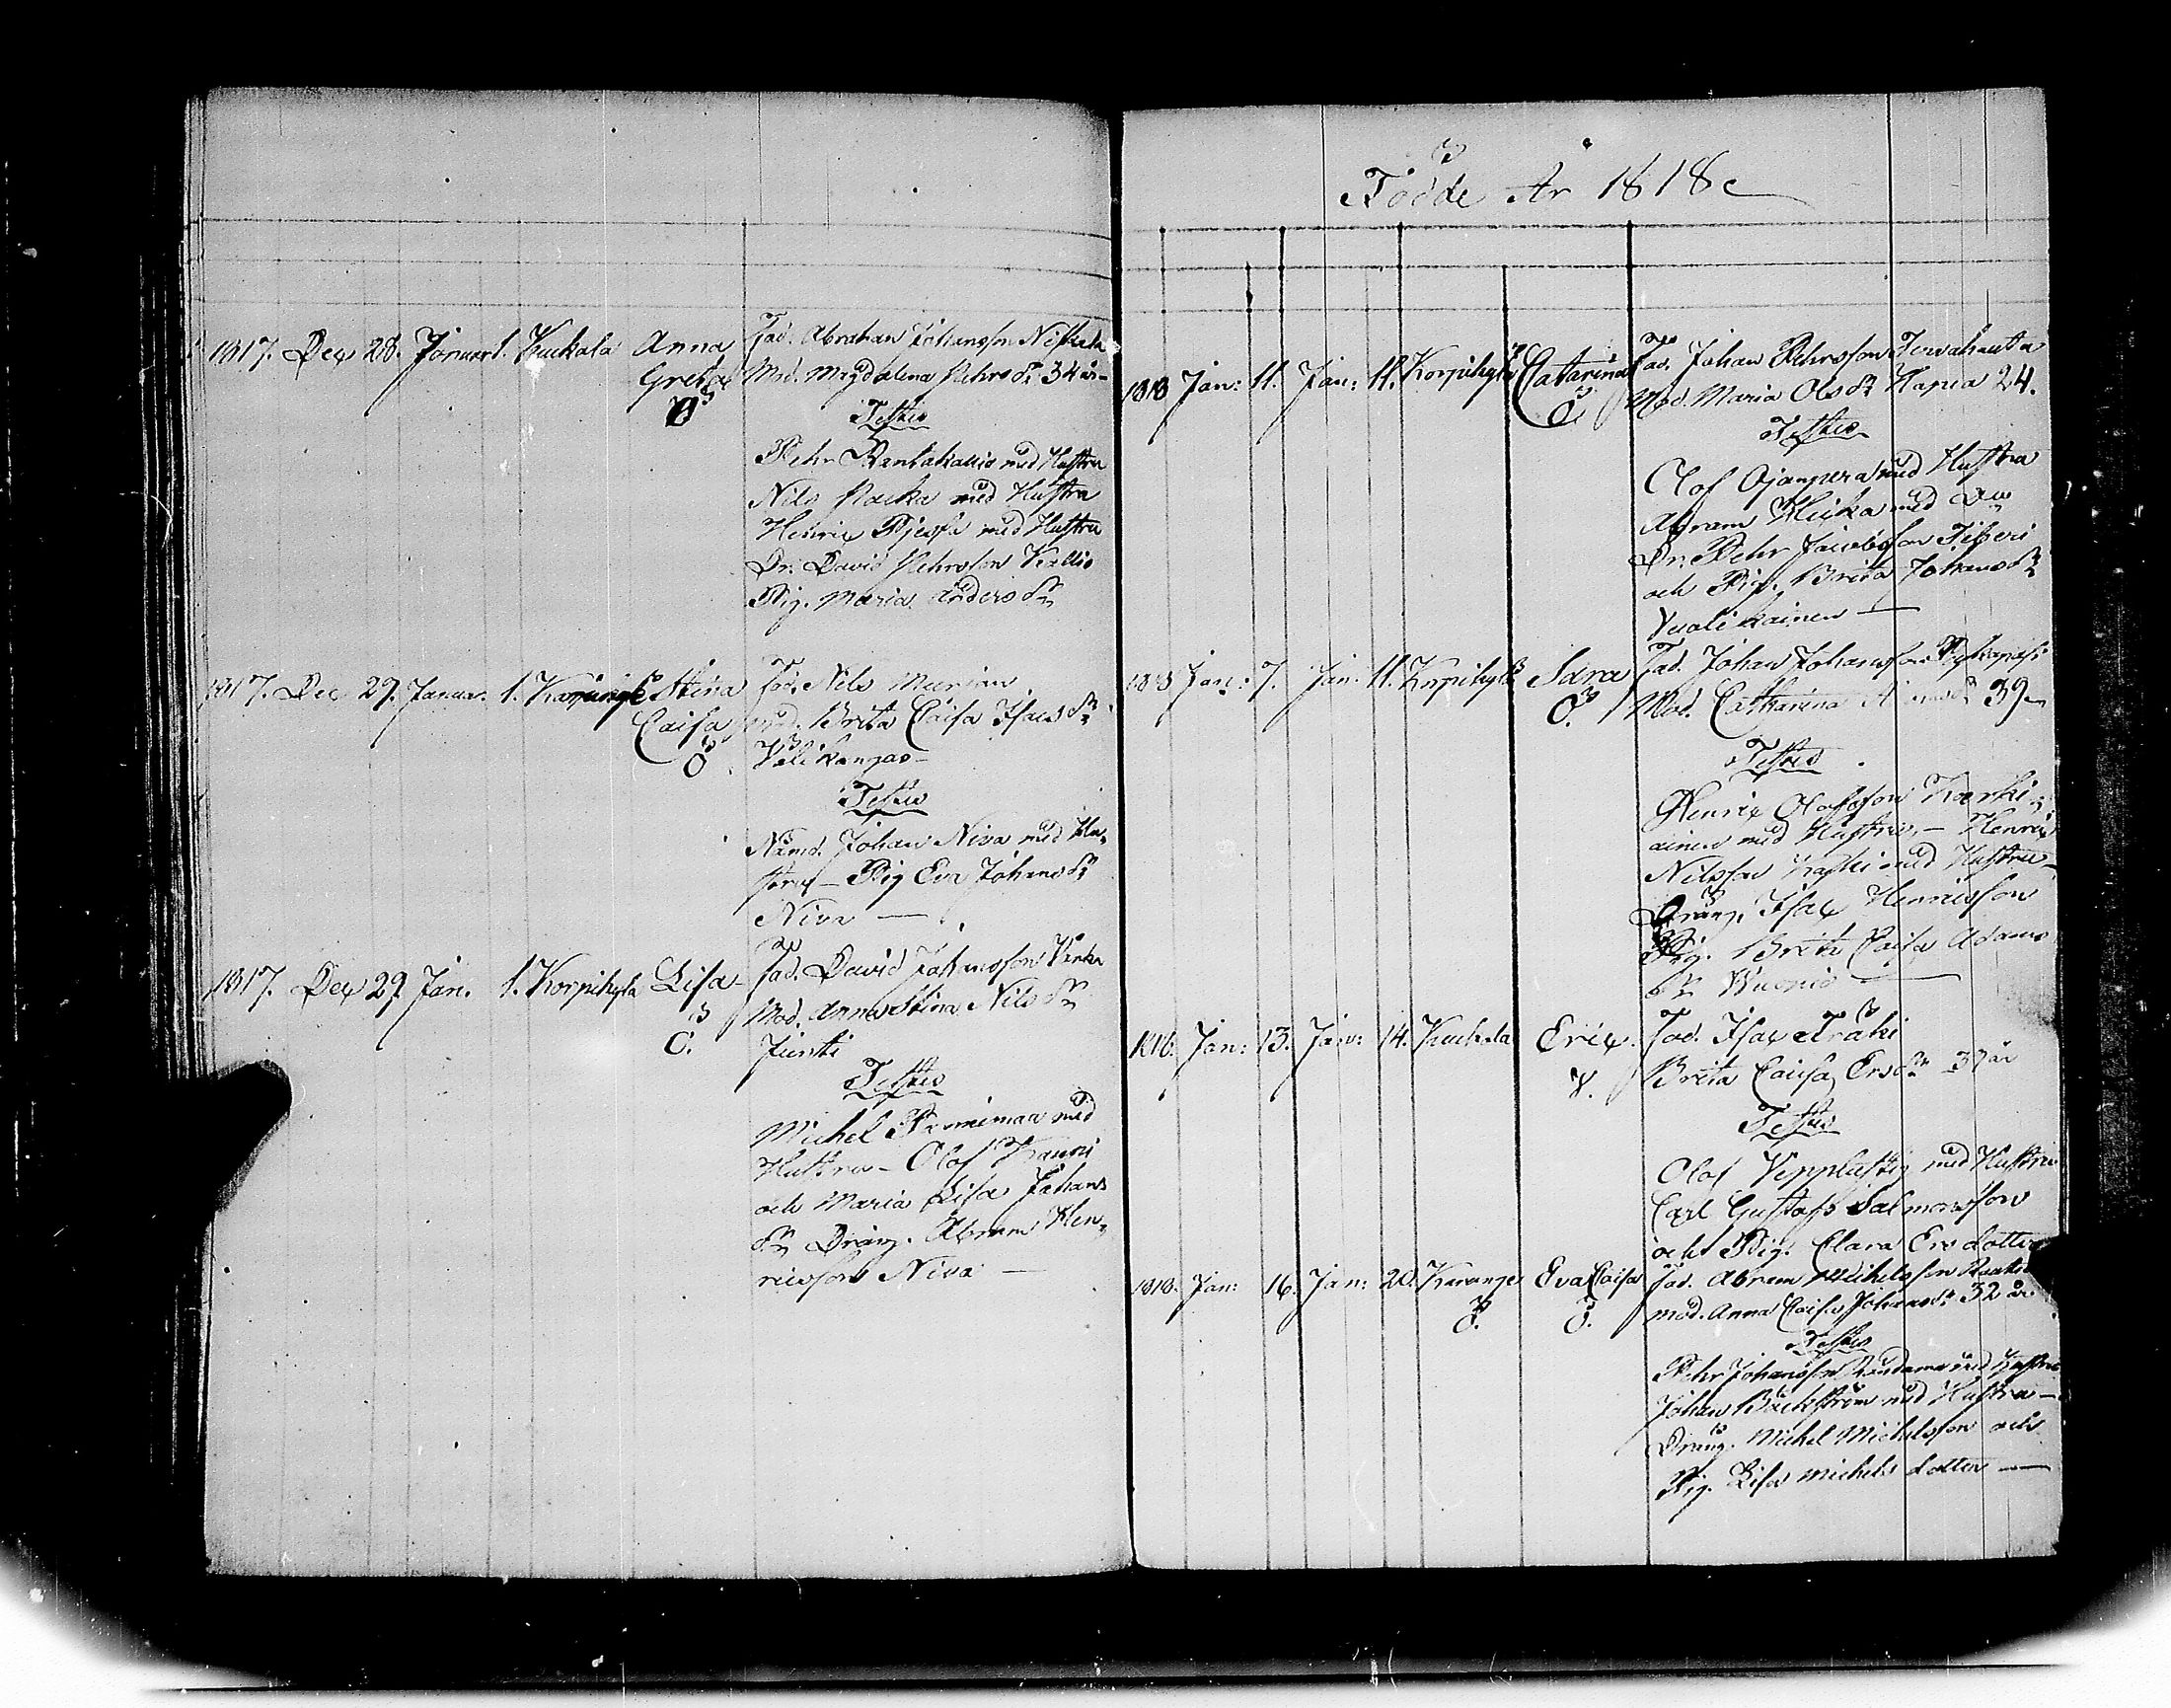 1817. Dec 28. Januar 1. Kuckala Anna Fad. Abraham Johansson Niskala
Greta Mod. Magdalena Pehrs dr 34 år
Ö Testes
Pehr Rantakallio med Hustru
Nils Packa med Hustru
Henric med Hustru
Dr. David Pehrsson Kallio
Pig. Maria Anders dr
1817. Dec 29. Januar. 1. Karungi Stina Fad. Nils
Caisa mod. Brita Caisa Isacs dr
Ö Välikangas
Testes
Nämd. Johan Niva med Hu-
stru – Pig Eva Johans dr
Niva
1817. Dec 29 Jan. 1. Korpikylä Lisa Fad. David Johansson
Ö. Mod. Anna Stina Nils dr
Junti
Testes
Michel med
Hustru – Olof Kauni
och Maria Lisa Johans
dr Dräng. Abram Hen-
ricsson Niva
Födde År 1818
1818 Jan: 11. Jan: 11. Korpikylä Catarina Fad. Johan Pehrsson Tervahauta
Ö Mod. Maria Ols dr Hapia 24.
Testes
Olof Ojanperä med Hustru
Abram med
Dr. Pehr Jacobsson
och Pig. Brita Johans dr
Vuolikainen
1818 Jan: 7. Jan: 11. Korpikylä Sara Fad. Johan Johansson
Ö. Mod. Catharina 39
Testes
Henric Olofsson Karki-
ainen med Hustru – Henric
Nilsson med Hustru
Dräng. Isac Henricsson
Pig. Brita Caisa Adams
dr
1818. Jan: 13. Jan: 14. Kuckula Eric. Fad. Isac
V. Brita Caisa Ers dr 37 år
Testes
Olof med Hustru
Carl Gustaf Salmonsson
och Pig. Clara Ers dotter
1818. Jan: 16. Jan: 20. Karungi Eva Caisa Fad. Abram Michelsson
Ö. Ö. mod. Anna Caisa Johans dr 32 år
Testes
Pehr Johansson med Hustru
Johan Bäckström med Hustru –
Dräng. Michel Michelsson och
Pig. Lisa Michels dotter